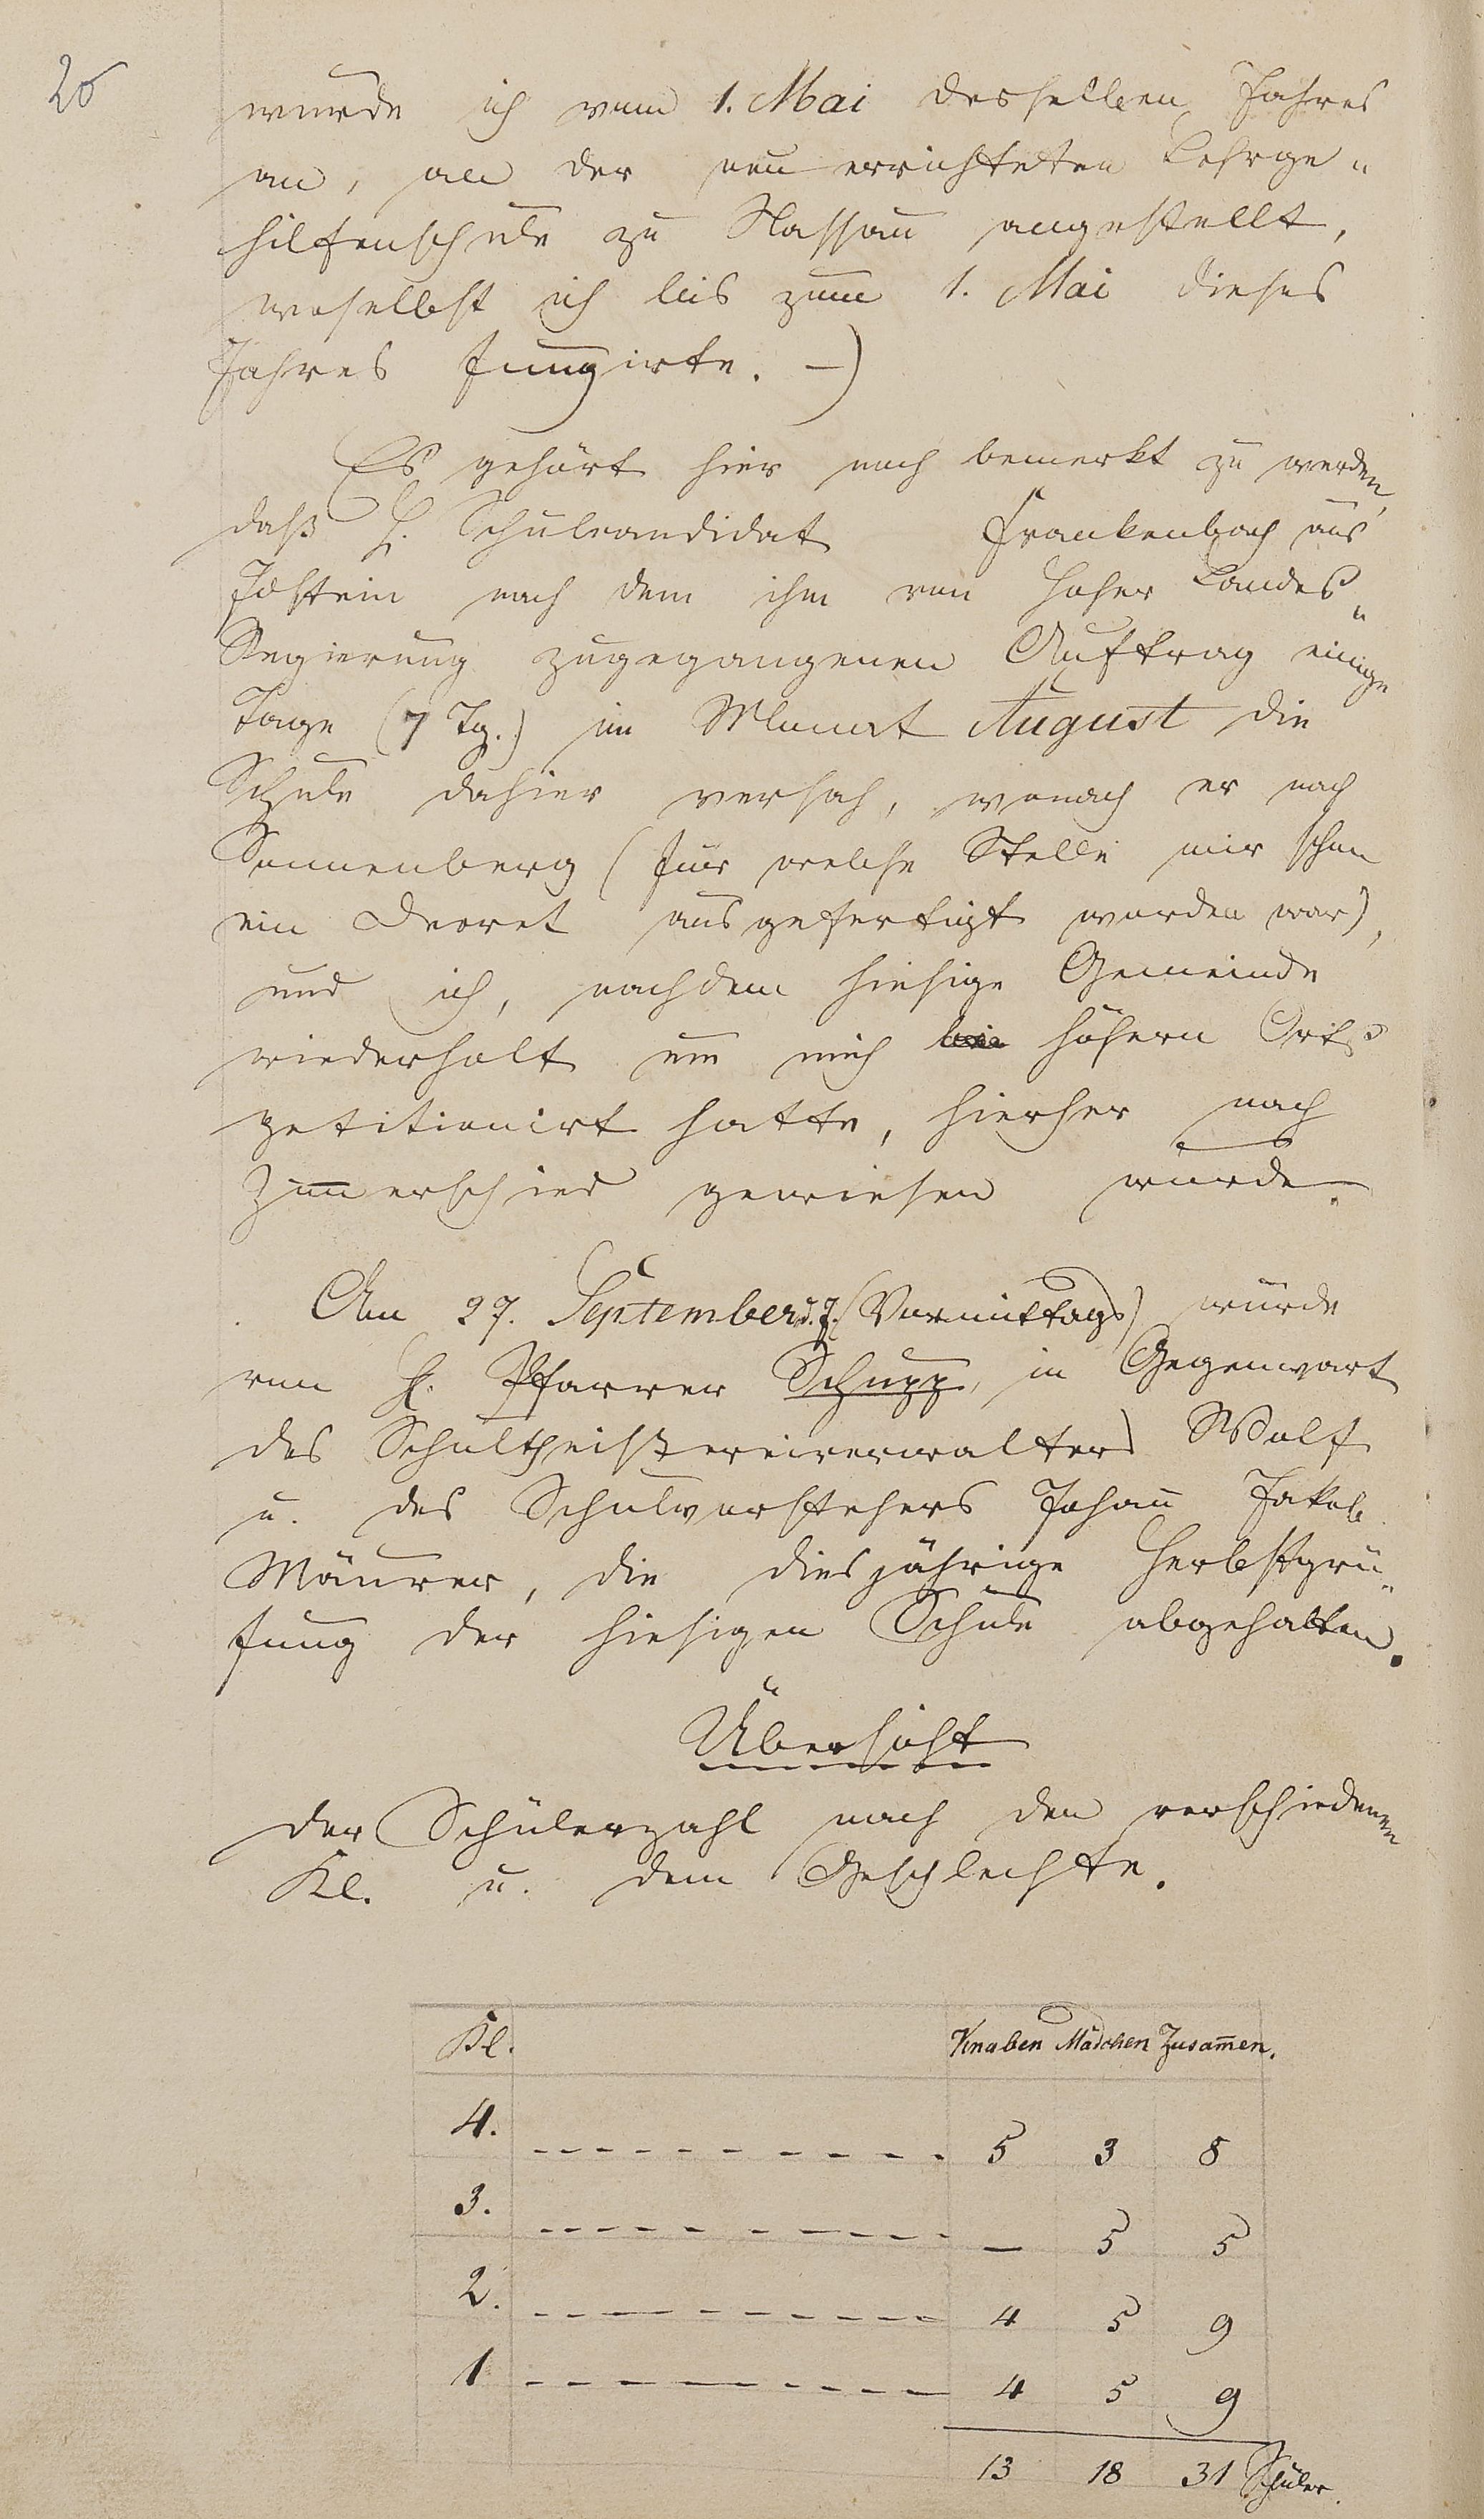 26
wurde ich vom 1. Mai desselben Jahres
an, an der neu errichteten Lehrge„
hilfenschule zu Nassau angestellt,
woselbst ich bis zum 1. Mai dieses
Jahres fungirte. —)
Es gehört hier noch bemerkt zu werden,
daß H. Schulcandidat Frankenbach aus
Idstein nach dem ihm von hoher Landes„
Regierung zugegangenen Auftrag einige
Tage (7 Tg.) im Monat August die
Schule dahier versah, wonach er nach
Sonnenberg (für welche Stelle mir schon
ein Decret ausgefertigt worden war),
und ich, nachdem hiesige Gemeinde
wiederholt um mich bei höhern Orts
petitionirt hatte, hierher nach
Zimmerschied gewiesen wurde.
Am 27. September d. J. (Vormittags) wurde
von H. Pfarrer Schupp, in Gegenwart
des Schultheißereiverwalters Wolf
u. des Schulvorstehers Johann Jakob
Maurer, die diesjährige Herbstprü„
fung der hiesigen Schule abgehalten.
Übersicht
der Schülerzahl nach den verschiedenen
Kl. u. dem Geschlechte.
Kl. Knaben Mädchen Zusam̄en.
4. 5 3 8
3. — 5 5
2. 4 5 9
1 4 5 9
13 18 31 Schüler.